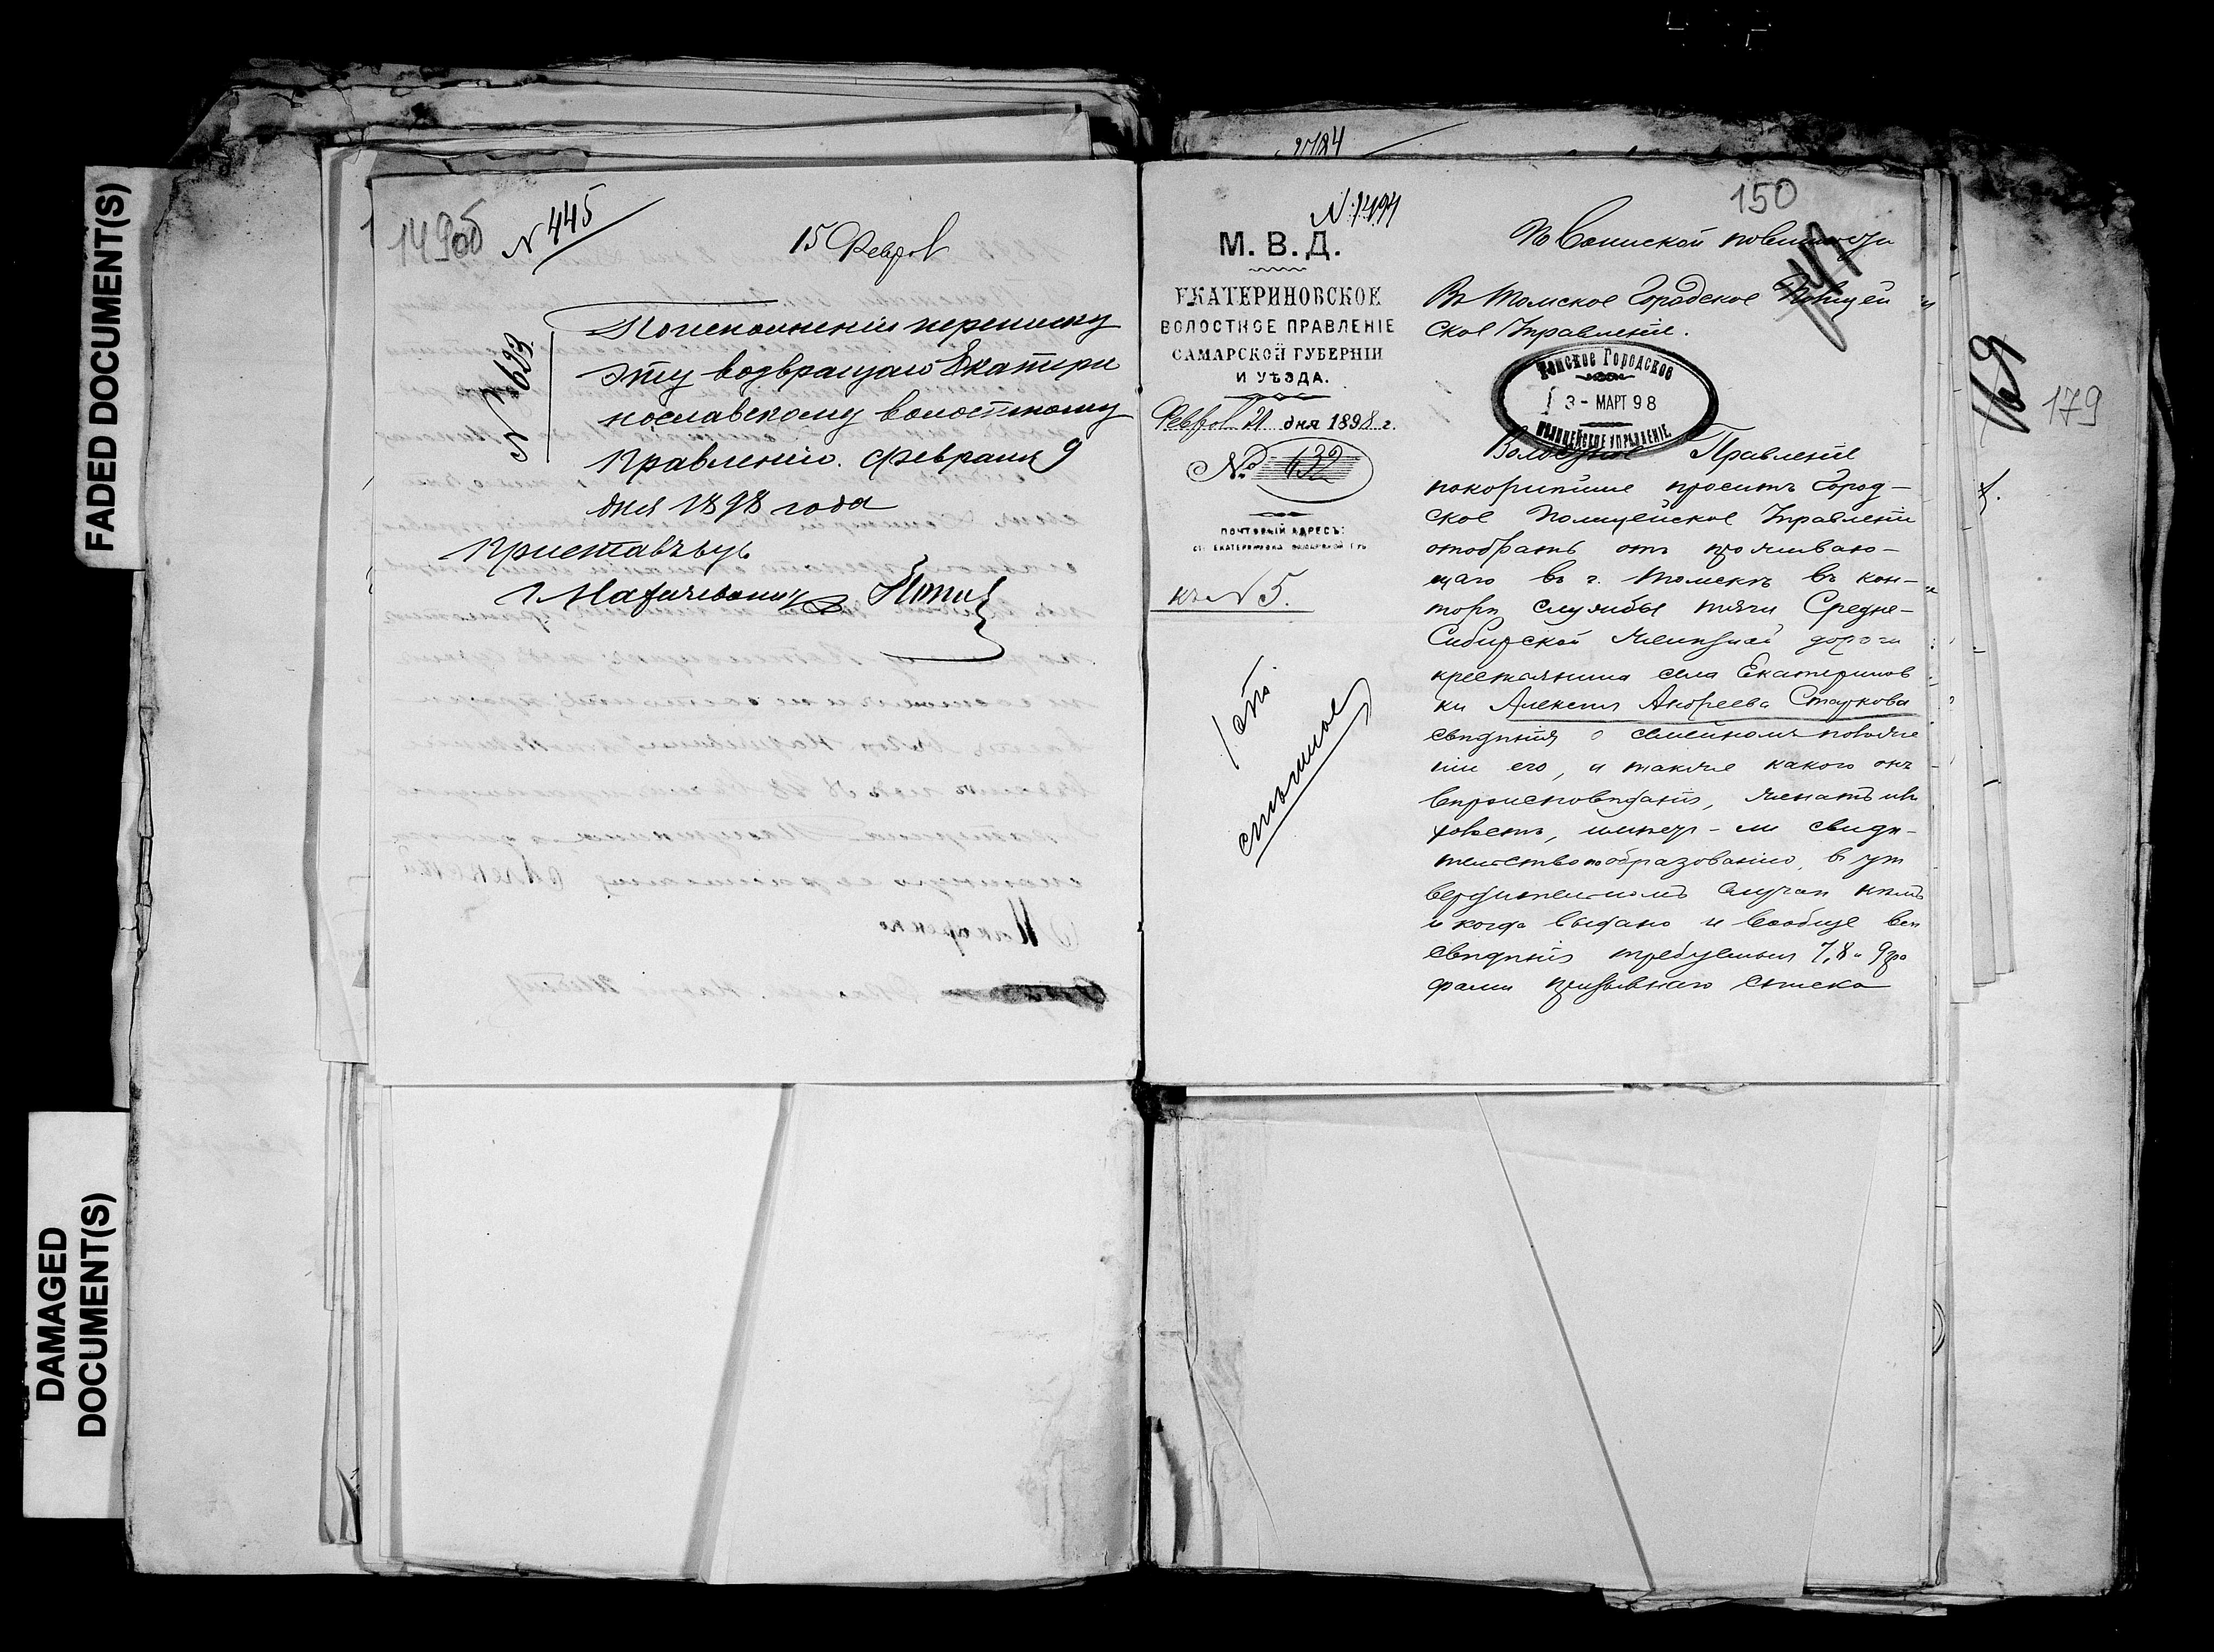 FADED DOCUMENT(S)
DAMAGED
DOCUMENT(S)
149об
N 445
15 Феврал
N 623
По исполненіи переписку
эту возвращаю Екатери
нославскому волостному
Правленію. Февраля 9
дня 1898 года
Приставъ
2184
N 1494
М. В. Д.
ЕКАТЕРИНОВСКОЕ
ВОЛОСТНОЕ ПРАВЛЕНІЕ
САМАРСКОЙ ГУБЕРНІИ
И УѢЗДА.
Феврал 21 дня 1898 г.
№ 632
ПОЧТОВЫЙ АДРЕСЪ:
СТ. ЕКАТЕРИНОВКА САМАРСКОЙ ГУБ.
къ N 5.
спѣшное
150
По воинской повинности
Въ Томское Городское Полицей
ское Управленіе.
Томское Городское
3 - МАРТ 98
ПОЛИЦЕЙСКОЕ УПРАВЛЕНІЕ.
Волостное Правленіе
покорнѣйше проситъ Город-
ское Полицейское Управленіе
отобрать отъ проживаю-
щаго въ г. Томскѣ въ кон-
торѣ службы тяги Средне-
Сибирской желѣзной дороги
крестьянина села Екатеринов
ки Алексѣя Андреева Старкова
свѣдѣнія о семейномъ положе
ніи его, а также какого онъ
вѣроисповѣданія, женатъ или
холостъ, имѣетъ-ли свидѣ-
тельство по образованію, въ ут
вердительномъ случаѣ кѣмъ
и когда выдано и вообще всѣ
свѣдѣнія требуемыя 7, 8 и 9 гра
фами призывнаго списка
169
179